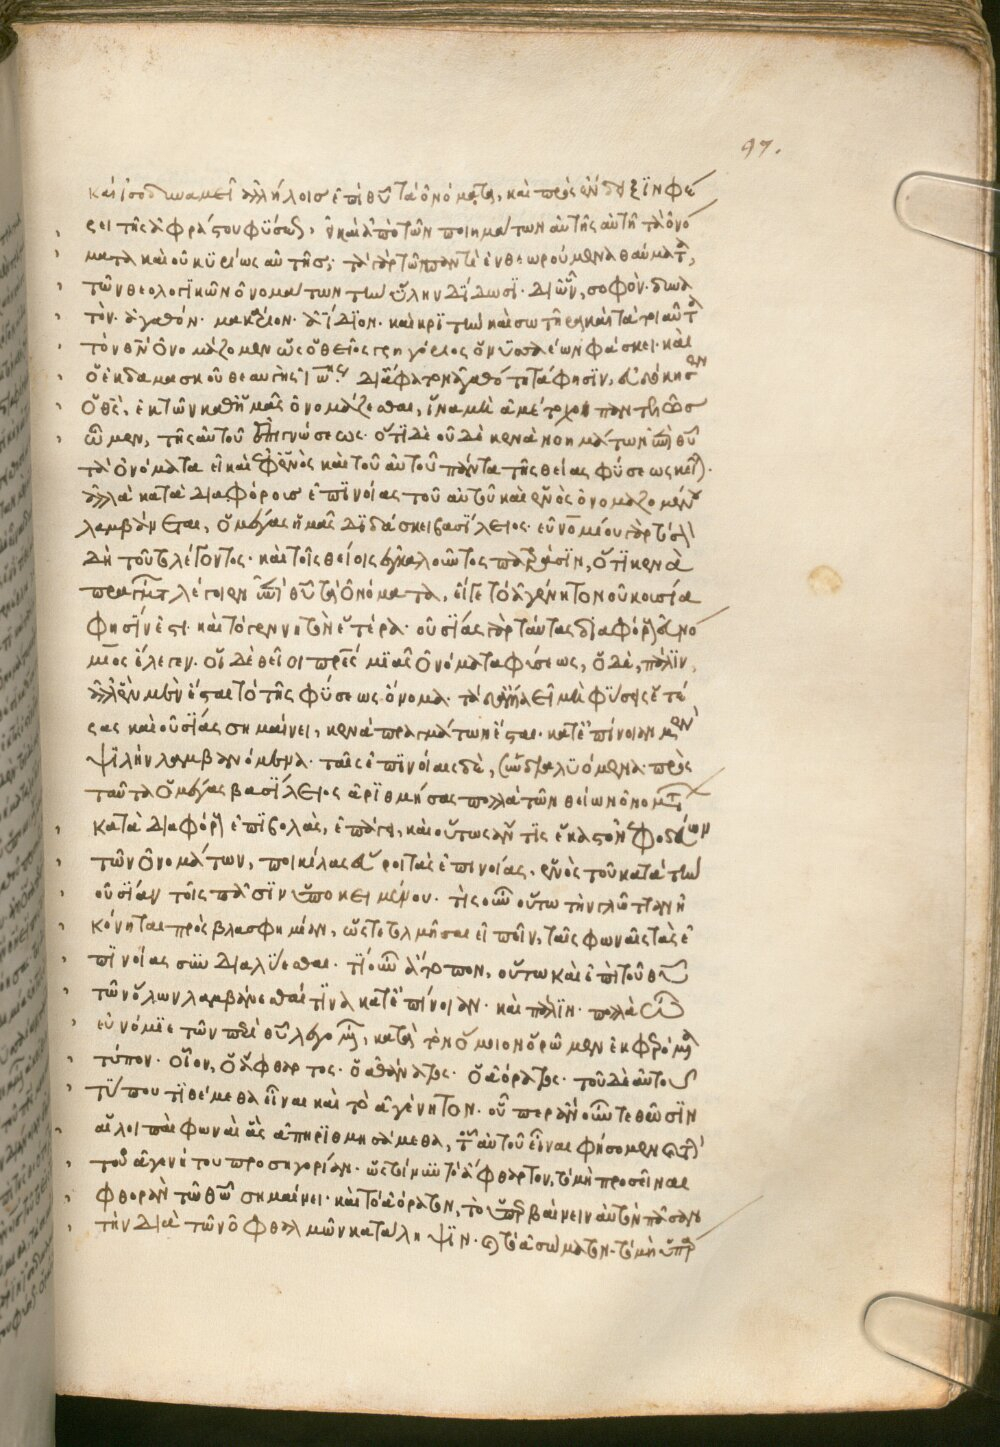 97.
καὶ ἰσοδυναμεῖ ἀλλήλοις ἐπὶ θῦ τὰ ὀνόματα, καὶ πρὸς ἓν δόξιν φέ
ρει τῆς ἀφράστου φύσεως, καὶ ἀπὸ τῶν ποιημάτων αὐτῆς αὐτῇ τὰ ὀνό
ματα καὶ οὐ κυρίως αὐτῆς· τὰ γὰρ τῷ παντὶ ἐνθεωρούμενα θαύματα,
τῶν θεολογικῶν ὀνομάτων τὴν ὕλην δίδωσι· δι' ὧν, σοφόν· δυνα
τόν· ἀγαθόν· μακάριον· ἀΐδιον· καὶ κριτὴν καὶ σωτῆρα καὶ τὰ τοιαῦτα
τὸν θν ὀνομάζομεν ὡς ὁ θεῖος γρηγόριος ὁ νύσσης φάσκει· καὶ
ὁ ἐκ δαμασκοῦ θεαυγὴς ἰω· διὰ ἄφατον ἀγαθότητα φησὶν, εὐδόκησεν
ὁ θς, ἐκ τῶν καθ' ἡμᾶς ὀνομάζεσθαι, ἵνα μὴ ἀμέτοχοι παντελῶς
ὦμεν, τῆς αὐτοῦ ἐπιγνώσεως· ὅτι δὲ οὐδὲ κενὰ νοημάτων ἐπὶ θῦ
τὰ ὀνόματα εἰ καὶ ἐφ' ἑνὸς καὶ τοῦ αὐτοῦ πάντα τῆς θείας φύσεως κεῖται·
ἀλλὰ κατὰ διαφόροις ἐπινοίας τοῦ αὐτοῦ καὶ ἑνὸς ὀνομαζομένου
λαμβάνεται, ὁ μέγας ἡμᾶς διδάσκει βασίλειος· εὐνομίου γὰρ
δὴ τοῦτο λέγοντος· καὶ τοῖς θείοις ἐγκαλοῦντος πατράσιν, ὅτι κενὰ
πραγμάτων λέγοιεν ἐπὶ θῦ τὰ ὀνόματα, εἴγε τὸ ἀγέννητον οὐκ οὐσία
φησίν ἐστι· καὶ τὸ γεννητὸν ἑτέρα· οὐσίας γὰρ ταύτας διαφόρους ὁ ἀνό
μος ἔλεγεν· οἱ δὲ θεῖοι πρες μιᾶς ὀνόματα φύσεως, ὁ δὲ, πάλιν,
ἀλλ' ἓν μὲν ἔσται τὸ τῆς φύσεως ὄνομα· τὰ ἄλλα εἰ μὴ φύσεις ἑτέ
ρας καὶ οὐσίας σημαίνει, κενὰ πραγμάτων ἔσται· κατ' ἐπίνοιαν μὲν
ψιλὴν λαμβανόμενα· ταῖς ἐπινοίαις δὲ, συνδιαλυόμενα· πρὸς
ταῦτα ὁ μέγας βασίλειος ἀριθμήσας πολλὰ τῶν θείων ὀνομάτων
κατὰ διαφόρους ἐπιβολὰς, ἐπάγει, καὶ οὕτως ἄν τις ἕκαστον ἐφοδεύων
τῶν ὀνομάτων, ποικίλας εὕροι τὰς ἐπινοίας, ἑνὸς τοῦ κατὰ τὴν
οὐσίαν τοῖς πᾶσιν ὑποκειμένου· τίς οὖν οὕτω τὴν γλῶτταν ἠ
κόνηται πρὸς βλασφημίαν, ὥστε τολμῆσαι εἰπεῖν, ταῖς φωναῖς τὰς ἐ
πινοίας συνδιαλύεσθαι· τί οὖν ἄτοπον, οὕτω καὶ ἐπὶ τοῦ θῦ
τῶν ὅλων λαμβάνεσθαί τινα κατ' ἐπίνοιαν· καὶ πάλιν· πολλὰ οὖν
εὐνόμιε τῶν περὶ θῦ λεγομένων, κατὰ τὸν ὅμοιον ὁρῶμεν ἐκφερόμενα
τύπον· οἷον, ὁ ἄφθαρτος· ὁ ἀθάνατος· ὁ ἀόρατος· τοῦ δὲ αὐτοῦ
τύπου τιθέμεθα εἶναι καὶ τὸ ἀγέννητον· ὥσπερ ἂν οὖν τεθῶσιν
αἱ λοιπαὶ φωναὶ ἃς ἀπηριθμησάμεθα, τοῦ αὐτοῦ εἶναι φήσομεν καὶ
τοῦ ἀγενήτου προσηγορίαν· ὥς ἐστι τὸ ἄφθαρτον, τὸ μὴ προσεῖναι
φθορὰν τῷ θῷ σημαίνει· καὶ τὸ ἀόρατον, τὸ ὑπερβαίνειν αὐτὸν πᾶσαν
τὴν διὰ τῶν ὀφθαλμῶν κατάληψιν· καὶ τὸ ἀσώματον, τὸ μὴ ὑπάρ